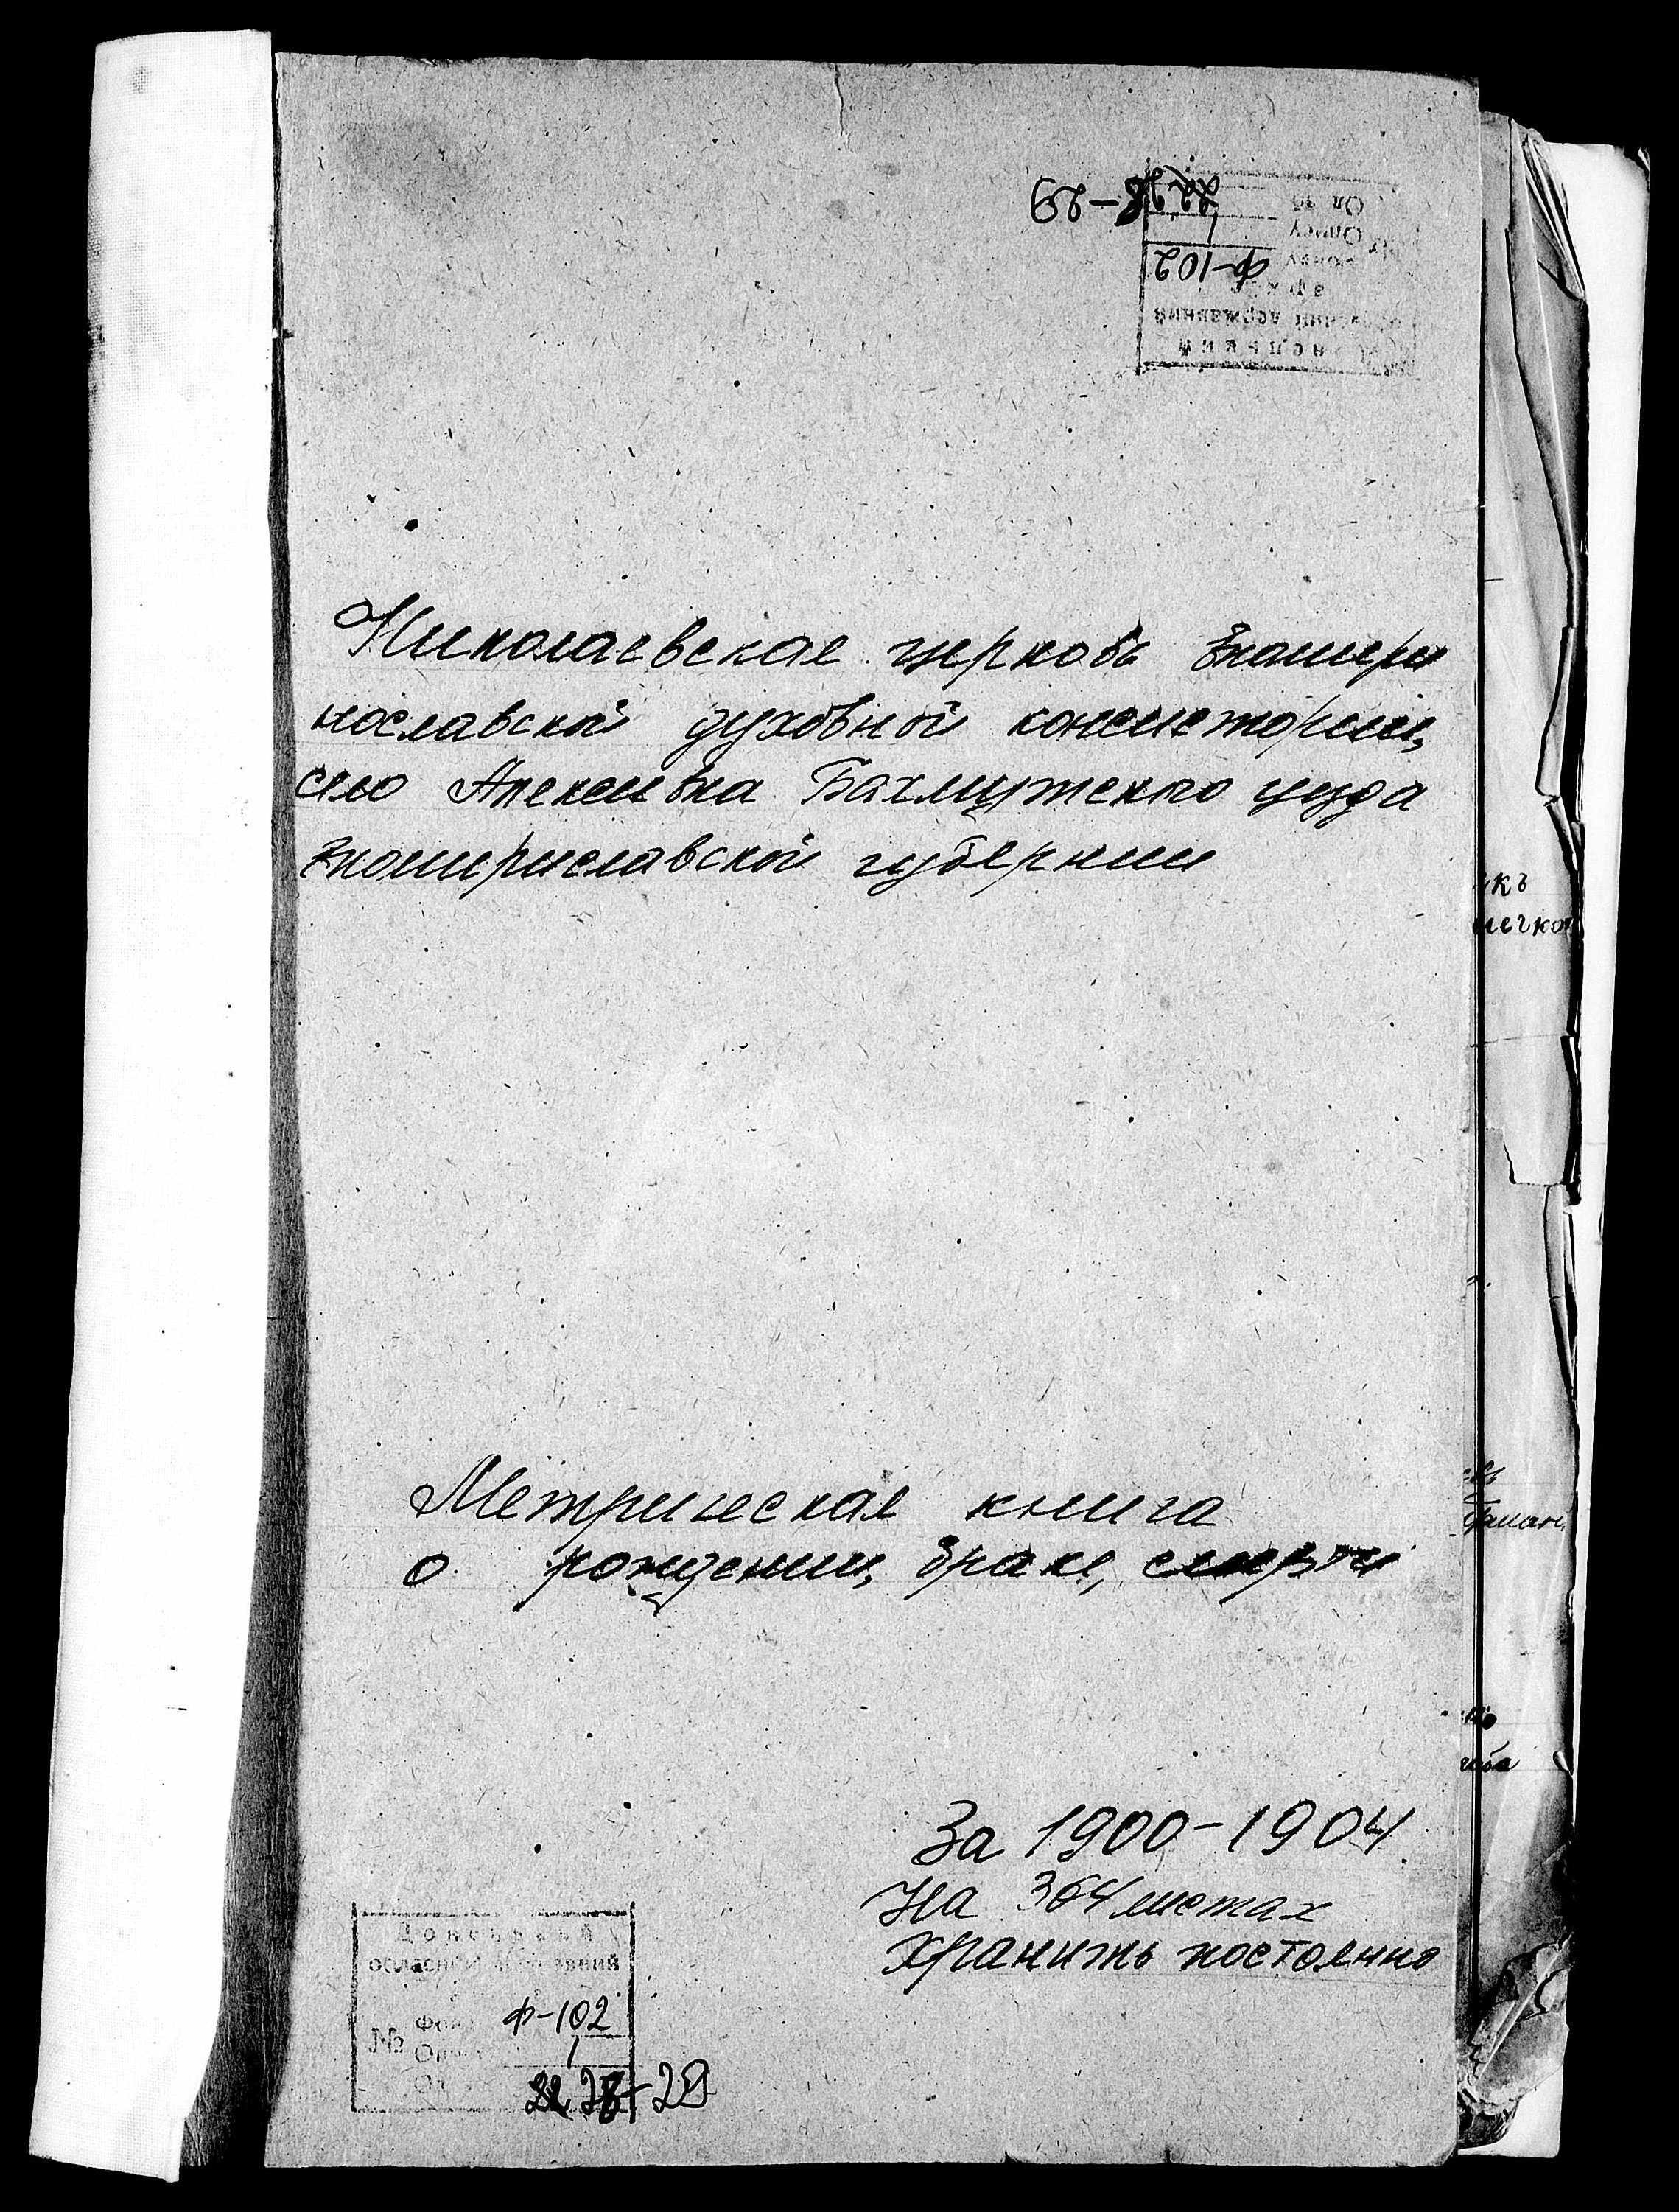 Ф-102
1
-29
Николаевская церковь Екатери
нославской духовной консистории,
село Алексеевка Бахмутского уезда
Екатеринославской губернии
Метрическая книга
о рождении, браке, смерти
За 1900-1904
На 364 листах
Хранить постоянно
Донецький
обласний державний
Ф-102
№
1
28-29